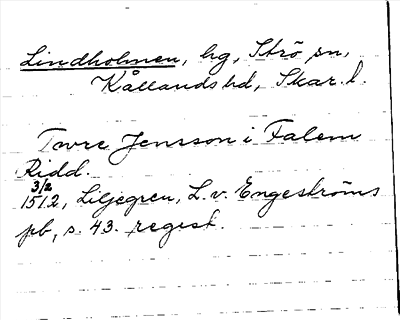 Lindholmen, hg, Strö sn,
Kållands hd, Skar. l.
Tvre Jensson i Falem
Ridd.
3/2
1512, Liljegren, L. v. Engeströms
pb, s. 43. regest.